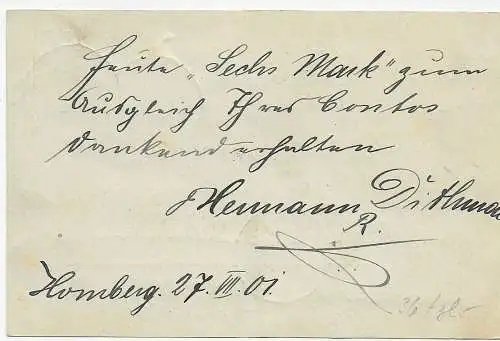 Heute „Sechs Mark" zum
Ausgleich Ihres Contos
dankend erhalten
Hermann Dithmar
R.
Homberg. 27. VII. 01.